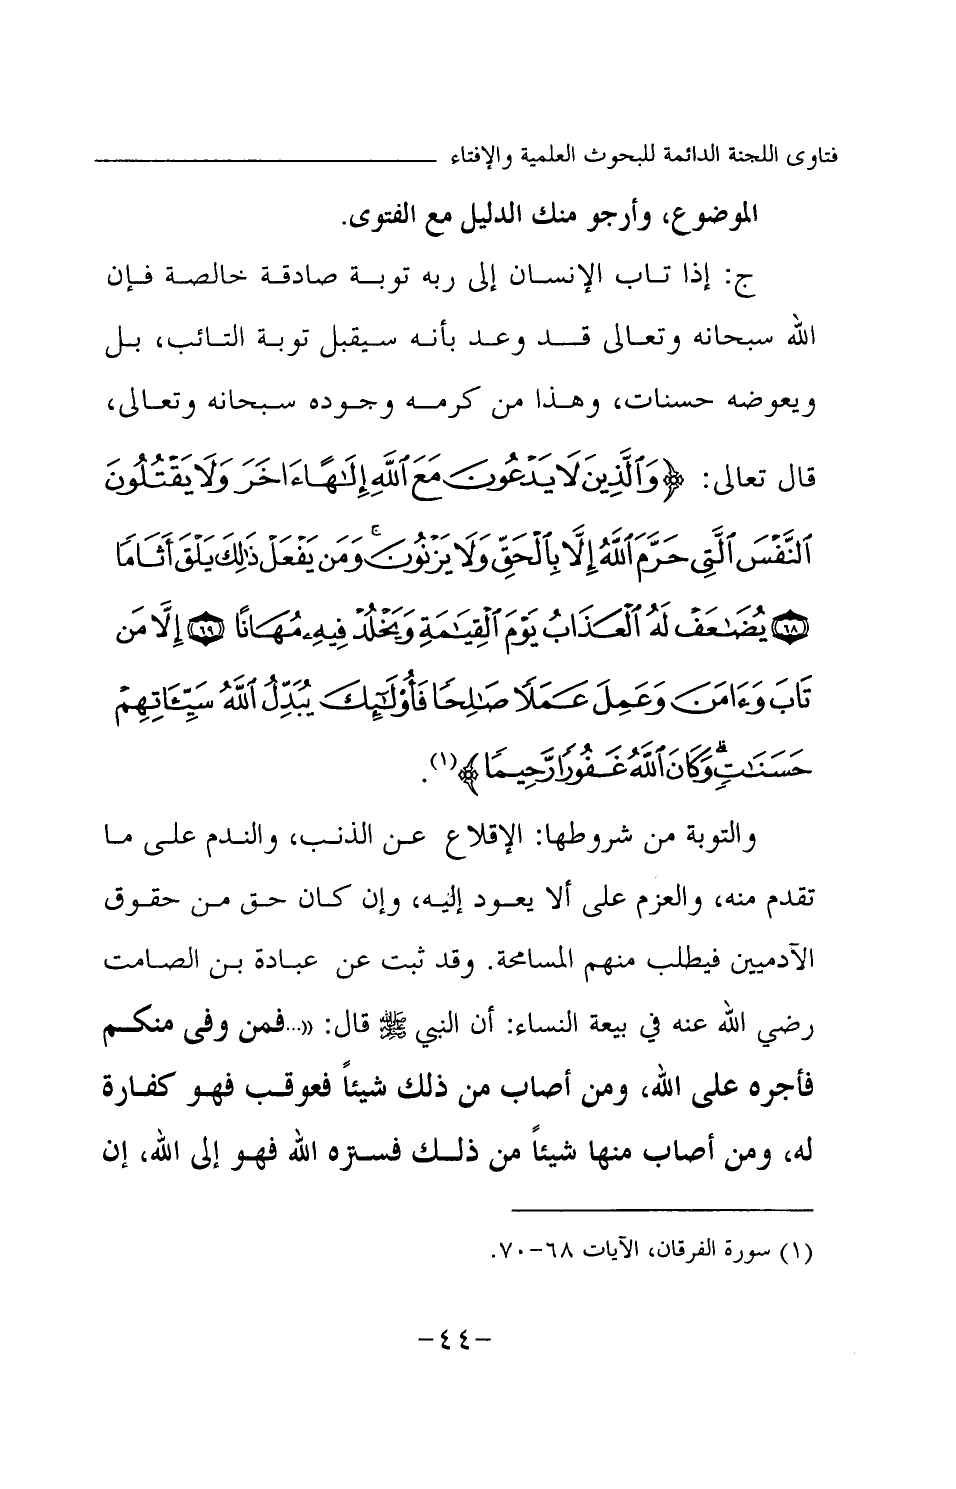 فتاوى اللجنة الدائمة للبحوث العلمية والإفتاء
الموضوع، وأرجو منك الدليل مع الفتوى.
ج: إذا تاب الإنسان إلى ربه توبة صادقة خالصة فإن
الله سبحانه وتعالى قد وعد بأنه سيقبل توبة التائب، بل
ويعوضه حسنات، وهذا من كرمه وجوده سبحانه وتعالى،
قال تعالى: ﴿وَٱلَّذِينَ لَا يَدْعُونَ مَعَ ٱللَّهِ إِلَـٰهًا ءَاخَرَ وَلَا يَقْتُلُونَ
ٱلنَّفْسَ ٱلَّتِى حَرَّمَ ٱللَّهُ إِلَّا بِٱلْحَقِّ وَلَا يَزْنُونَ ۚ وَمَن يَفْعَلْ ذَٰلِكَ يَلْقَ أَثَامًا
﴿٦٨﴾ يُضَـٰعَفْ لَهُ ٱلْعَذَابُ يَوْمَ ٱلْقِيَـٰمَةِ وَيَخْلُدْ فِيهِۦ مُهَانًا ﴿٦٩﴾ إِلَّا مَن
تَابَ وَءَامَنَ وَعَمِلَ عَمَلًا صَـٰلِحًا فَأُو۟لَـٰٓئِكَ يُبَدِّلُ ٱللَّهُ سَيِّـَٔاتِهِمْ
حَسَنَـٰتٍ ۗ وَكَانَ ٱللَّهُ غَفُورًا رَّحِيمًا﴾(١).
والتوبة من شروطها: الإقلاع عن الذنب، والندم على ما
تقدم منه، والعزم على ألا يعود إليه، وإن كان حق من حقوق
الآدميين فيطلب منهم المسامحة. وقد ثبت عن عبادة بن الصامت
رضي الله عنه في بيعة النساء: أن النبي ﷺ قال: «...فمن وفى منكم
فأجره على الله، ومن أصاب من ذلك شيئاً فعوقب فهو كفارة
له، ومن أصاب منها شيئاً من ذلك فستره الله فهو إلى الله، إن
(١) سورة الفرقان، الآيات ٦٨-٧٠.
-٤٤-